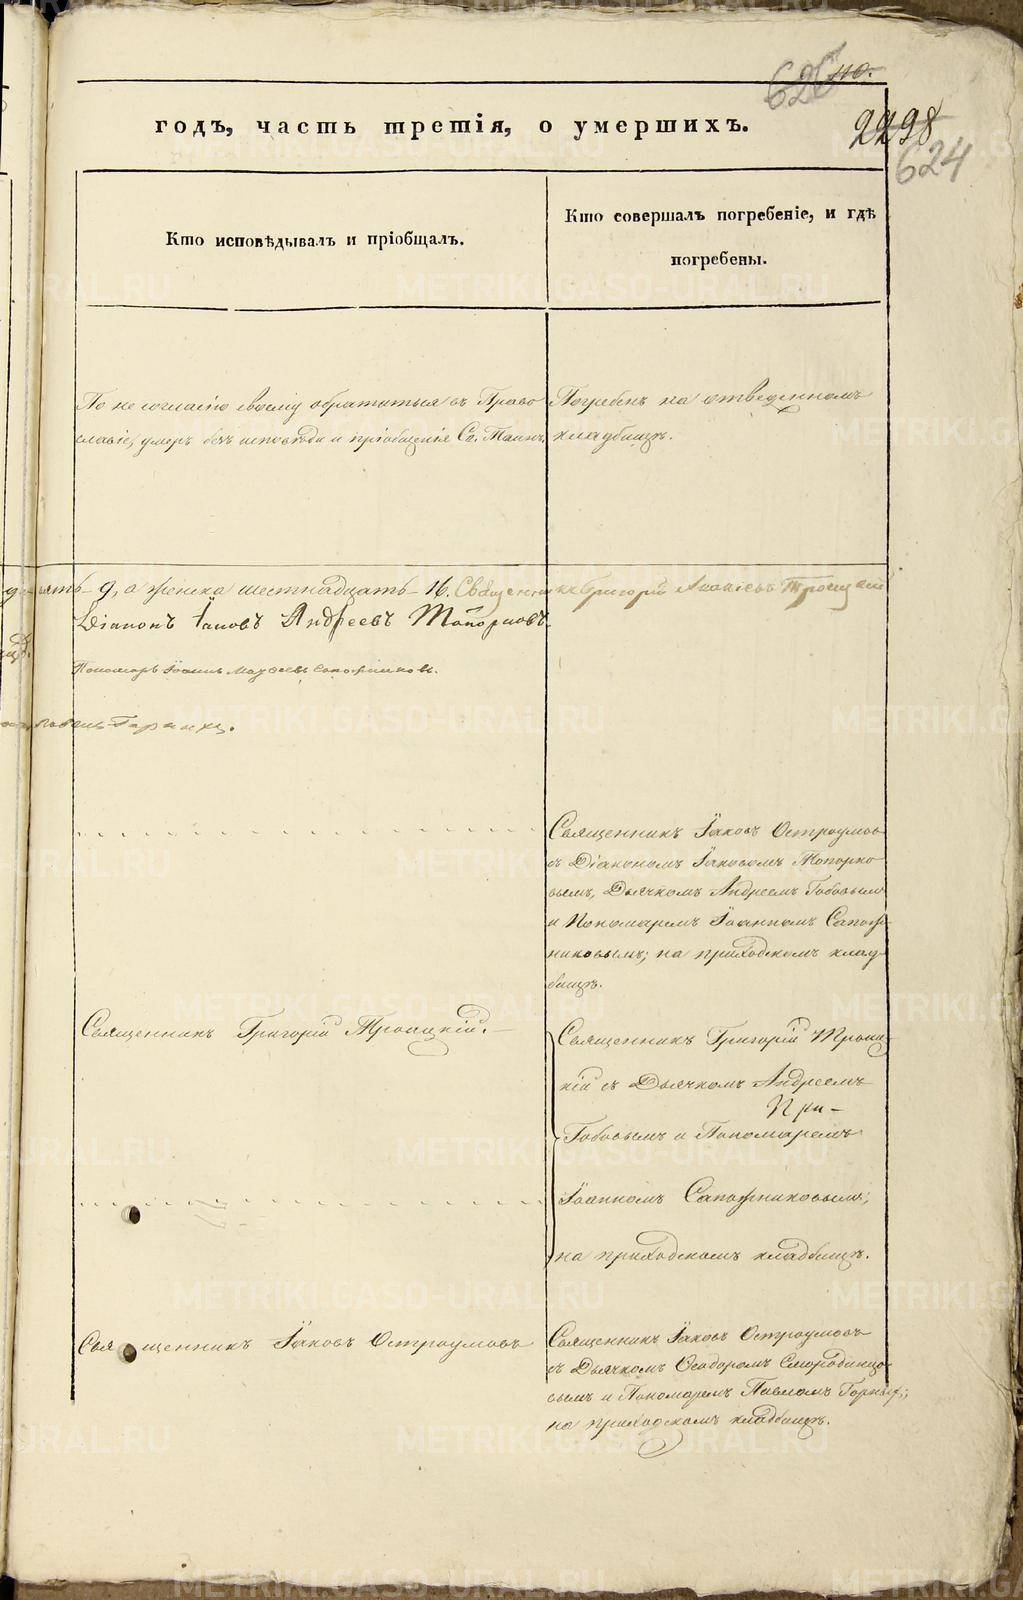 626 110.
годъ, часть третія, о умершихъ.
2298
624
Кто исповѣдывалъ и пріобщалъ.
Кто совершалъ погребеніе, и гдѣ
погребены.
По не согласію своему обратиться въ Право
славіе, умеръ безъ исповѣди и пріобщенія Св. Таинъ.
Погребенъ на отведенномъ
кладбищѣ.
девять - 9, а женска шестнадцать - 16. Священникъ Григорій Троицкій
Діаконъ Іаковъ Андреевъ Топорковъ.
Пономарь Іоаннъ Сапожниковъ.
Священникъ Іаковъ Остроумовъ
съ Діакономъ Іаковомъ Топорко
вымъ, Дьячкомъ Андреемъ Бабовымъ
и Пономаремъ Іоанномъ Сапож
никовымъ; на приходскомъ клад
бищѣ.
Священникъ Григорій Троицкій.
Священникъ Григорій Троиц
кій съ Дьячкомъ Андреемъ
При-
Бабовымъ и Пономаремъ
Іоанномъ Сапожниковымъ;
на приходскомъ кладбищѣ.
Священникъ Іаковъ Остроумовъ
Священникъ Іаковъ Остроумовъ
съ Дьячкомъ Ѳеодоромъ Смородинцо
вымъ и Пономаремъ Павломъ Горныхъ;
на приходскомъ кладбищѣ.
METRIKI.GASO-URAL.RU